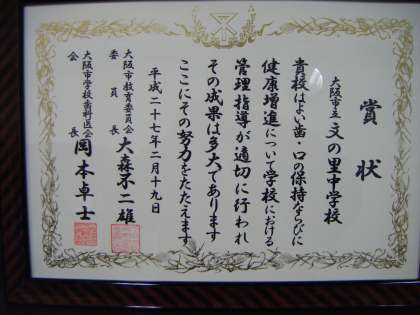 賞状
大阪市立文の里中学校
貴校はよい歯・口の保持ならびに
健康増進について学校における
管理指導が適切に行われ
その成果は多大であります
ここにその努力をたたえます
平成二十七年二月十九日
大阪市教育委員会
委員長 大森不二雄
大阪市学校歯科医会
会長 岡本卓士